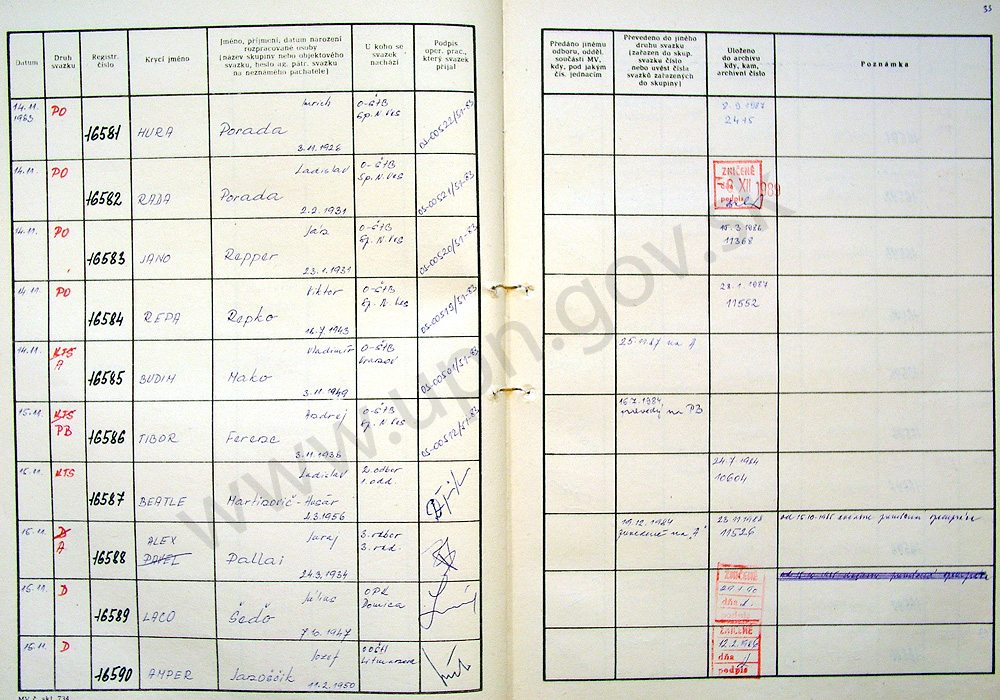 35
Datum
Druh svazku
Registr. číslo
Krycí jméno
Jméno, příjmení, datum narození
rozpracované osoby
(název skupiny nebo objektového
svazku, heslo ag. pátr. svazku
na neznámého pachatele)
U koho se
svazek
nachází
Podpis
oper. prac.,
který svazek
přijal
Předáno jinému
odboru, odděl.
součásti MV,
kdy, pod jakým
čís. jednacím
Převedeno do jiného
druhu svazku
(zařazen do skup.
svazku číslo
nebo uvést čísla
svazků zařazených
do skupiny)
Uloženo
do archivu
kdy, kam,
archivní číslo
Poznámka
14.11.
1983
PO
16581
HURA
Imrich
Porada
3.11.1926
O-ŠtB
Sp. N. Ves
OS-00522/51-83
8.9.1987
2415
14.11.
PO
16582
RADA
Ladislav
Porada
2.2.1931
O-ŠtB
Sp. N. Ves
OS-00521/51-83
ZNIČENÉ
XII 1989
podpis
14.11.
PO
16583
JANO
Ján
Repper
23.1.1931
O-ŠtB
Sp. N. Ves
OS-00520/51-83
11368
14.11.
PO
16584
REPA
Viktor
Repko
16.7.1943
O-ŠtB
Sp. N. Ves
OS-00519/51-83
11552
14.11.
KTS
A
16585
BUDIM
Vladimír
Mako
3.11.1949
O-ŠtB
OS-00501/51-83
na A
15.11.
KTS
PB
16586
TIBOR
Andrej
Ferenc
O-ŠtB
Sp. N. Ves
OS-00512/51-83
16.7.1984
na PB
15.11.
KTS
16587
BEATLE
Ladislav
Martinovič-Husár
2.3.1956
2. odbor
1. odd.
24.7.1984
10604
15.11.
D
A
16588
ALEX
PAVEL
Juraj
Pallai
24.3.1934
3. odbor
19.12.1984
na "A"
11526
15.11.
D
16589
LACO
Július
Šedo
7.10.1947
ZNIČENÉ
dňa
podpis
15.11.
D
16590
AMPER
Jozef
11.2.1950
ZNIČENÉ
12.2.1986
dňa
podpis
www.upn.gov.sk